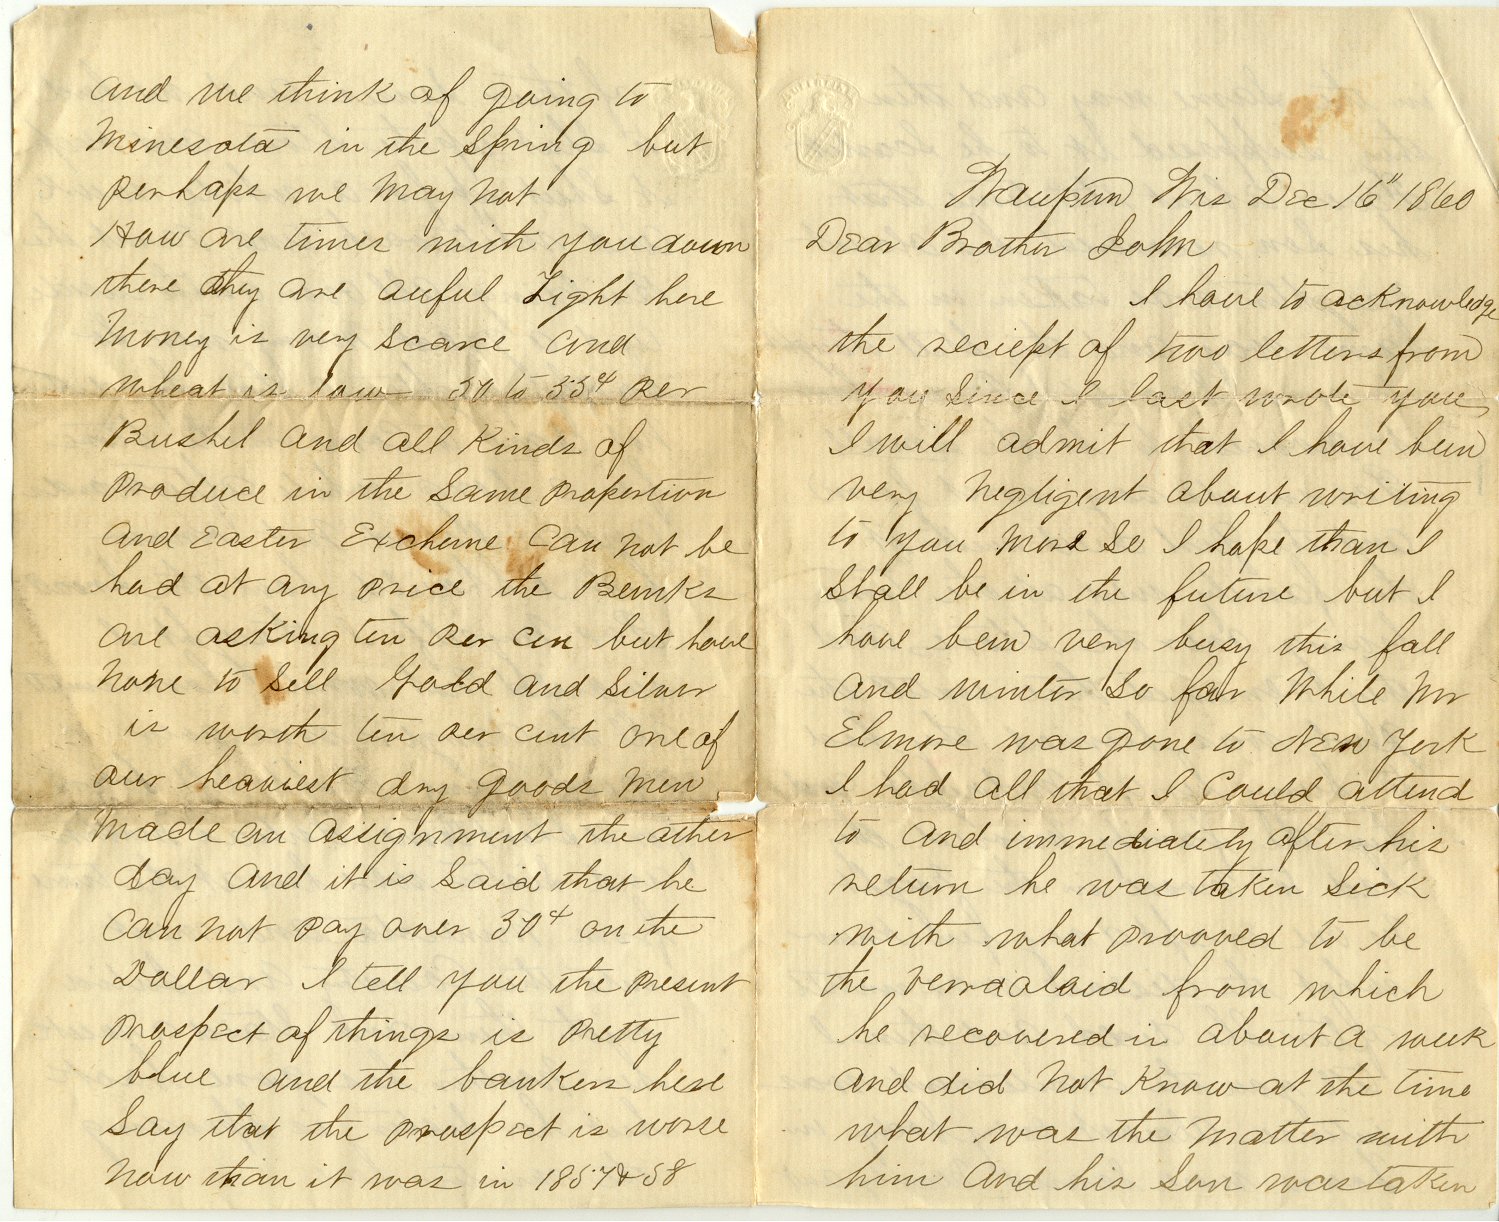 Waupun Wis Dec 16" 1860
Dear Brother John
I have to acknowledge
the reciept of two letters from
you since I last wrote you,
I will admit that I have been
very negligent about writing
to you more so I hope than I
shall be in the future but I
have been very busy this fall
and winter so far While Mr
Elmore was gone to New York
I had all that I could attend
to and immediately after his
return he was taken sick
with what prooved to be
the verraoloid from which
he recovered in about a week
and did not know at the time
what was the matter with
him And his Son was taken
and we think of going to
Minesota in the Spring but
perhaps we may not
How are times with you down
there they are auful Tight here
Money is very scarce and
wheat is low 50 to 55¢ per
Bushel and all kinds of
produce in the same propertion
and Easter Exchane Can not be
had at any price the Banks
are asking ten per cen but have
none to sell Gold and silver
is worth ten per cent one of
our heaviest dry goods men
made an assignment the other
day and it is said that he
Can not pay over 30¢ on the
Dollar I tell you the present
prospect of things is pretty
blue and the bankers here
say that the prospect is worse
now than it was in 1857 & 58